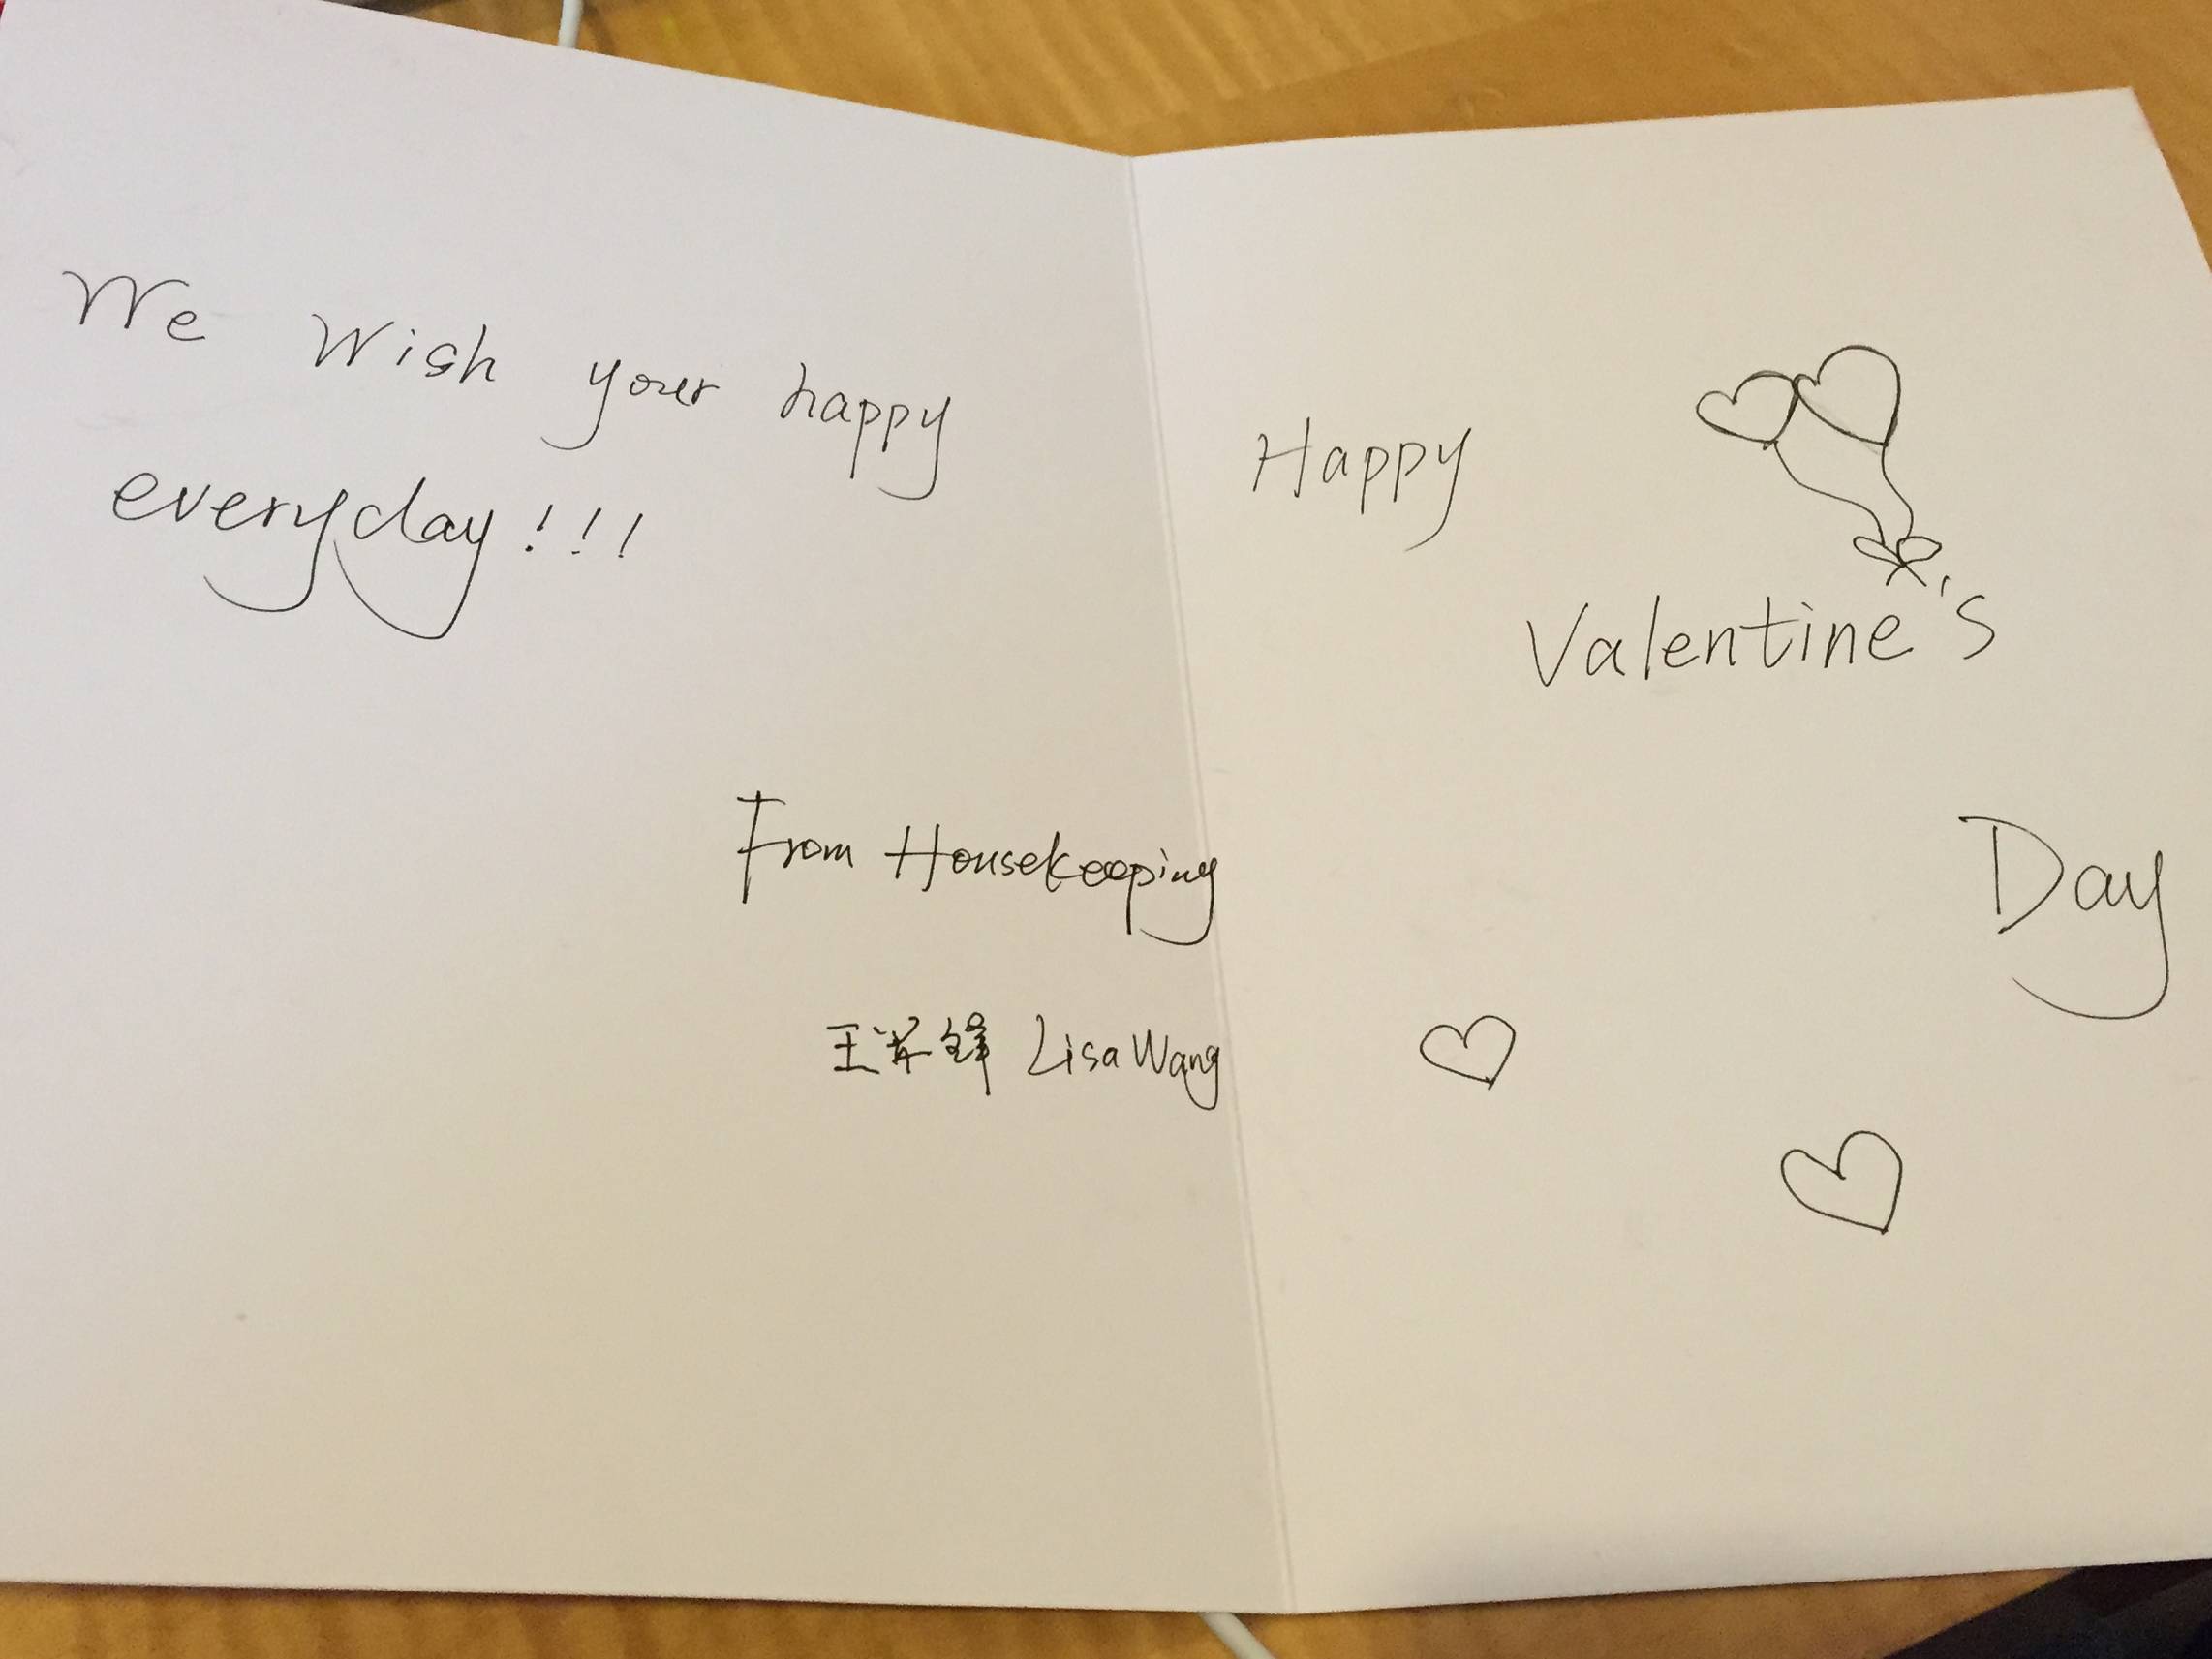 We Wish your happy
everyday!!!
From Housekeeping
王 锋 Lisa Wang
Happy
Valentine's
Day